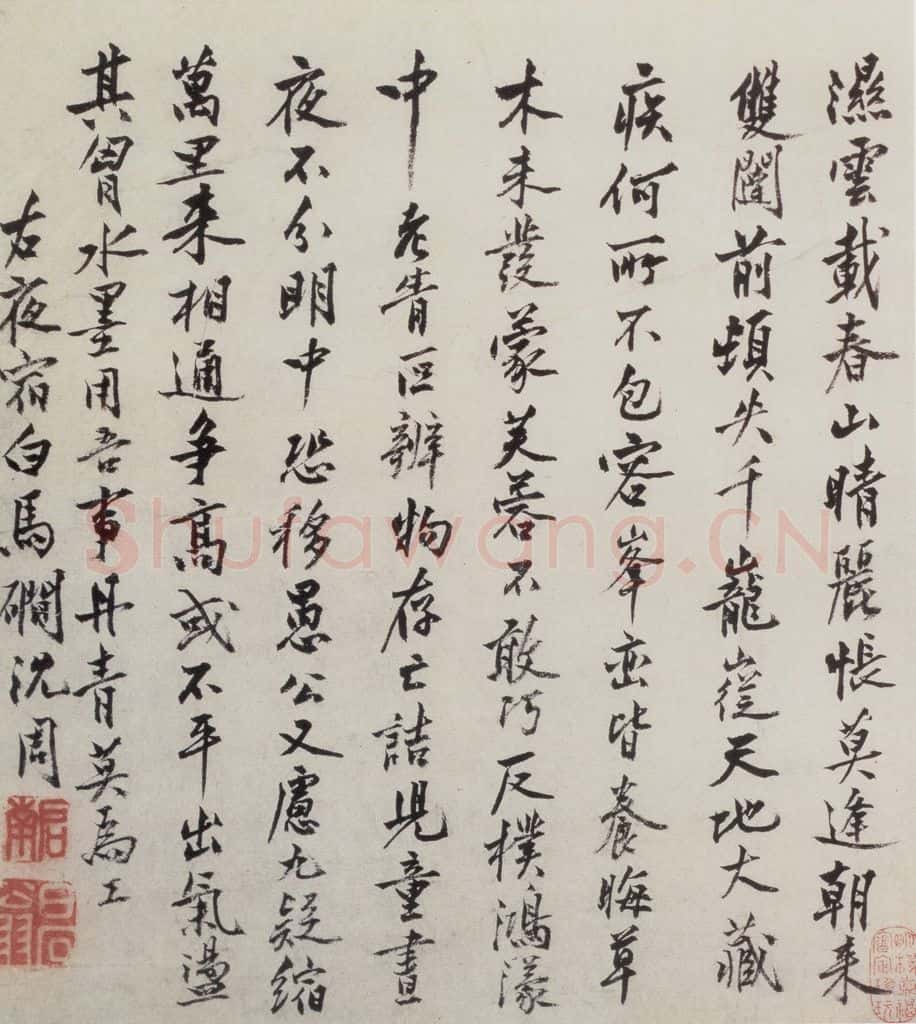 濕雲載春山晴麗悵莫逢朝来
雙闥前頓失千巃嵷天地大藏
疾何所不包容峯巒皆養晦草
木未發蒙芙蓉不敢巧反樸鴻濛
中老眚叵辨物存亡詰児童晝
夜不分明中恐移愚公又慮九疑縮
萬里来相通爭高或不平出氣盪
其胷水墨用吾事丹青莫為工
右夜宿白馬磵沈周
Shufawang.CN